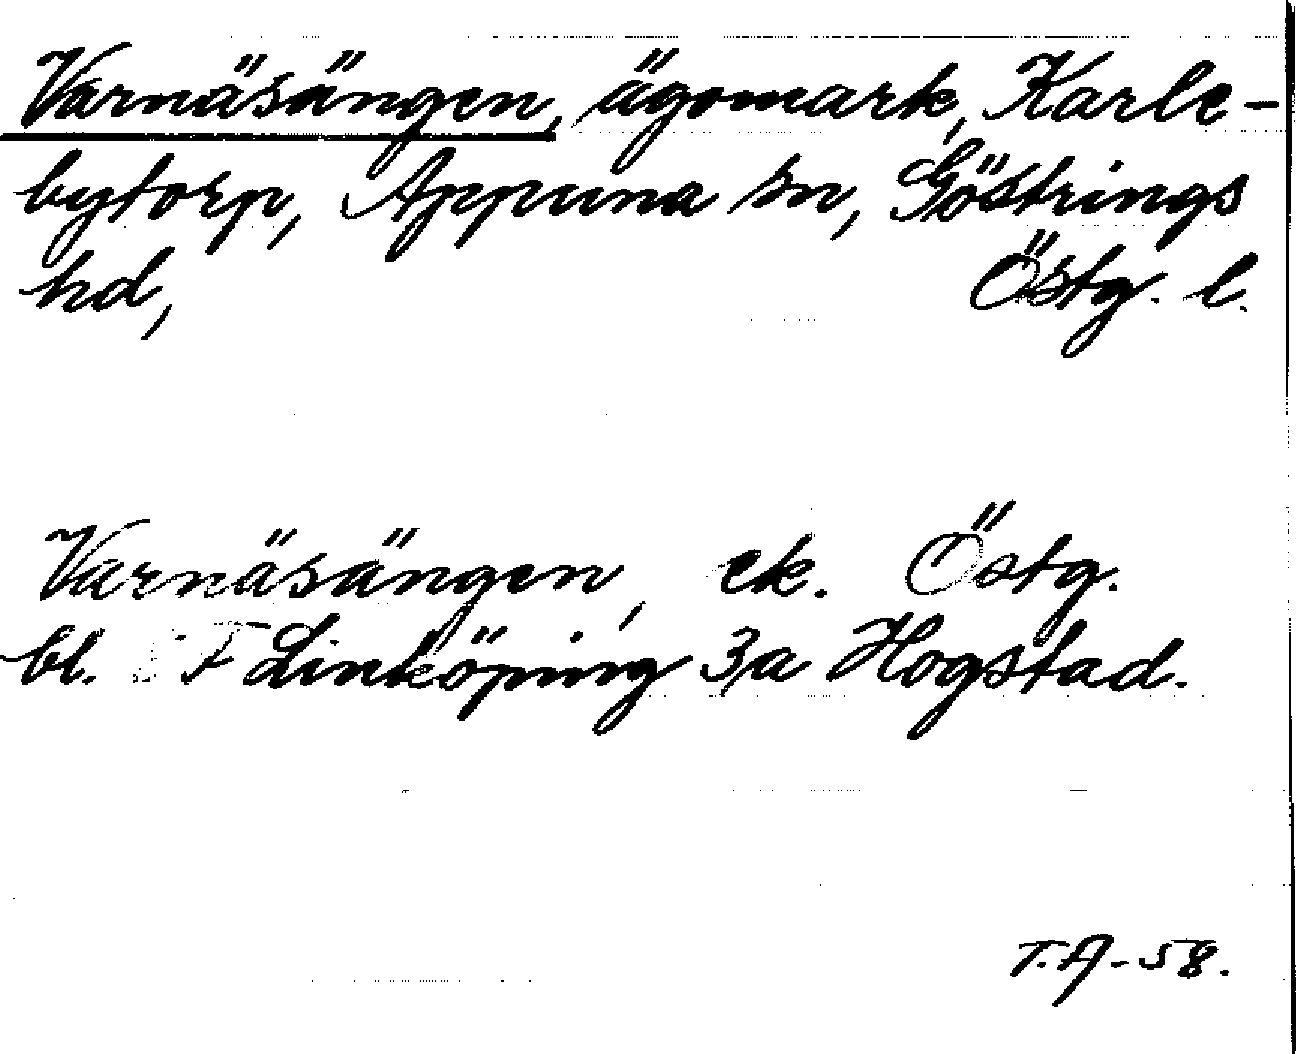 Varnäsängen, ägomark, Karle-
bytorp, Appuna sn, Göstrings
hd, Östg. l.
Varnäsängen, ek. Östg.
bl. Linköping 3a Hogstad.
T.A-58.